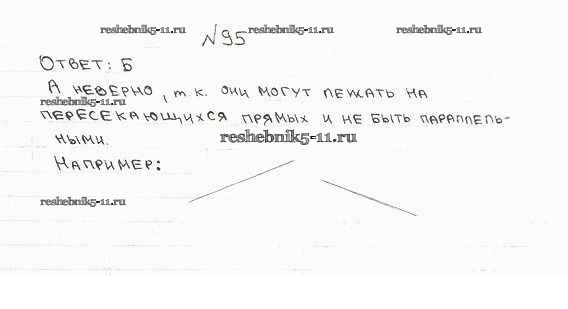 reshebnik5-11.ru reshebnik5-11.ru reshebnik5-11.ru
№95
Ответ: Б
А неверно, т.к. они могут лежать на
reshebnik5-11.ru
пересекающихся прямых и не быть параллель-
reshebnik5-11.ru
ными.
Например:
reshebnik5-11.ru